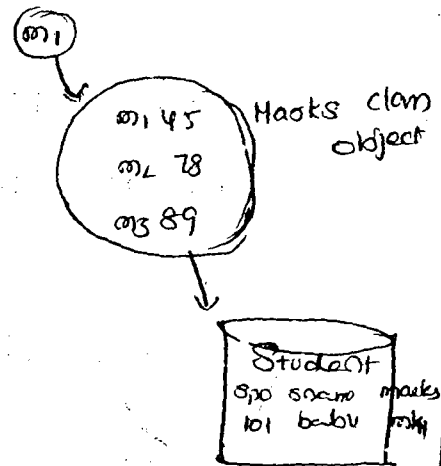 m1
m1 45
m2 78
m3 89
Marks class
object
Student
sno sname marks
101 babu